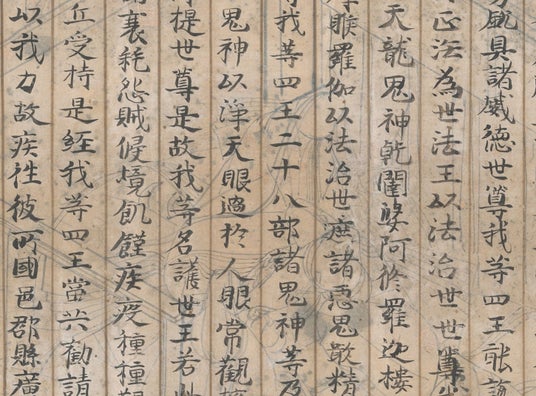 威具諸威德世尊我等四王能說
正法為世法王以法治世世尊
天龍鬼神乾闥婆阿修羅迦樓
睺羅伽以法治世遮諸惡鬼噉精
我等四王二十八部諸鬼神等乃
鬼神以淨天眼過於人眼常觀
提世尊是故我等名護世王若此
衰耗怨賊侵境飢饉疾疫種種
丘受持是經我等四王當共勸請
以我力故疾往彼所國邑郡縣廣